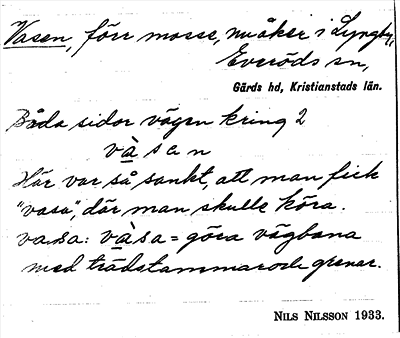 Vasen, förr mosse, nu åker i Lyngby,
Everöds sn,
Gärds hd, Kristianstads län.
Båda sidor vägen kring 2
vàsen
Här var så sankt, att man fick
"vasa", där man skulle köra.
vasa: vàsa = göra vägbana
med trädstammar och grenar.
NILS NILSSON 1933.